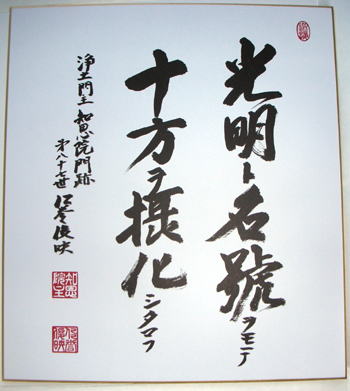 光明ト名號ヲモテ
十方ヲ摂化シタマフ
浄土門主 知恩院門跡
第八十七世